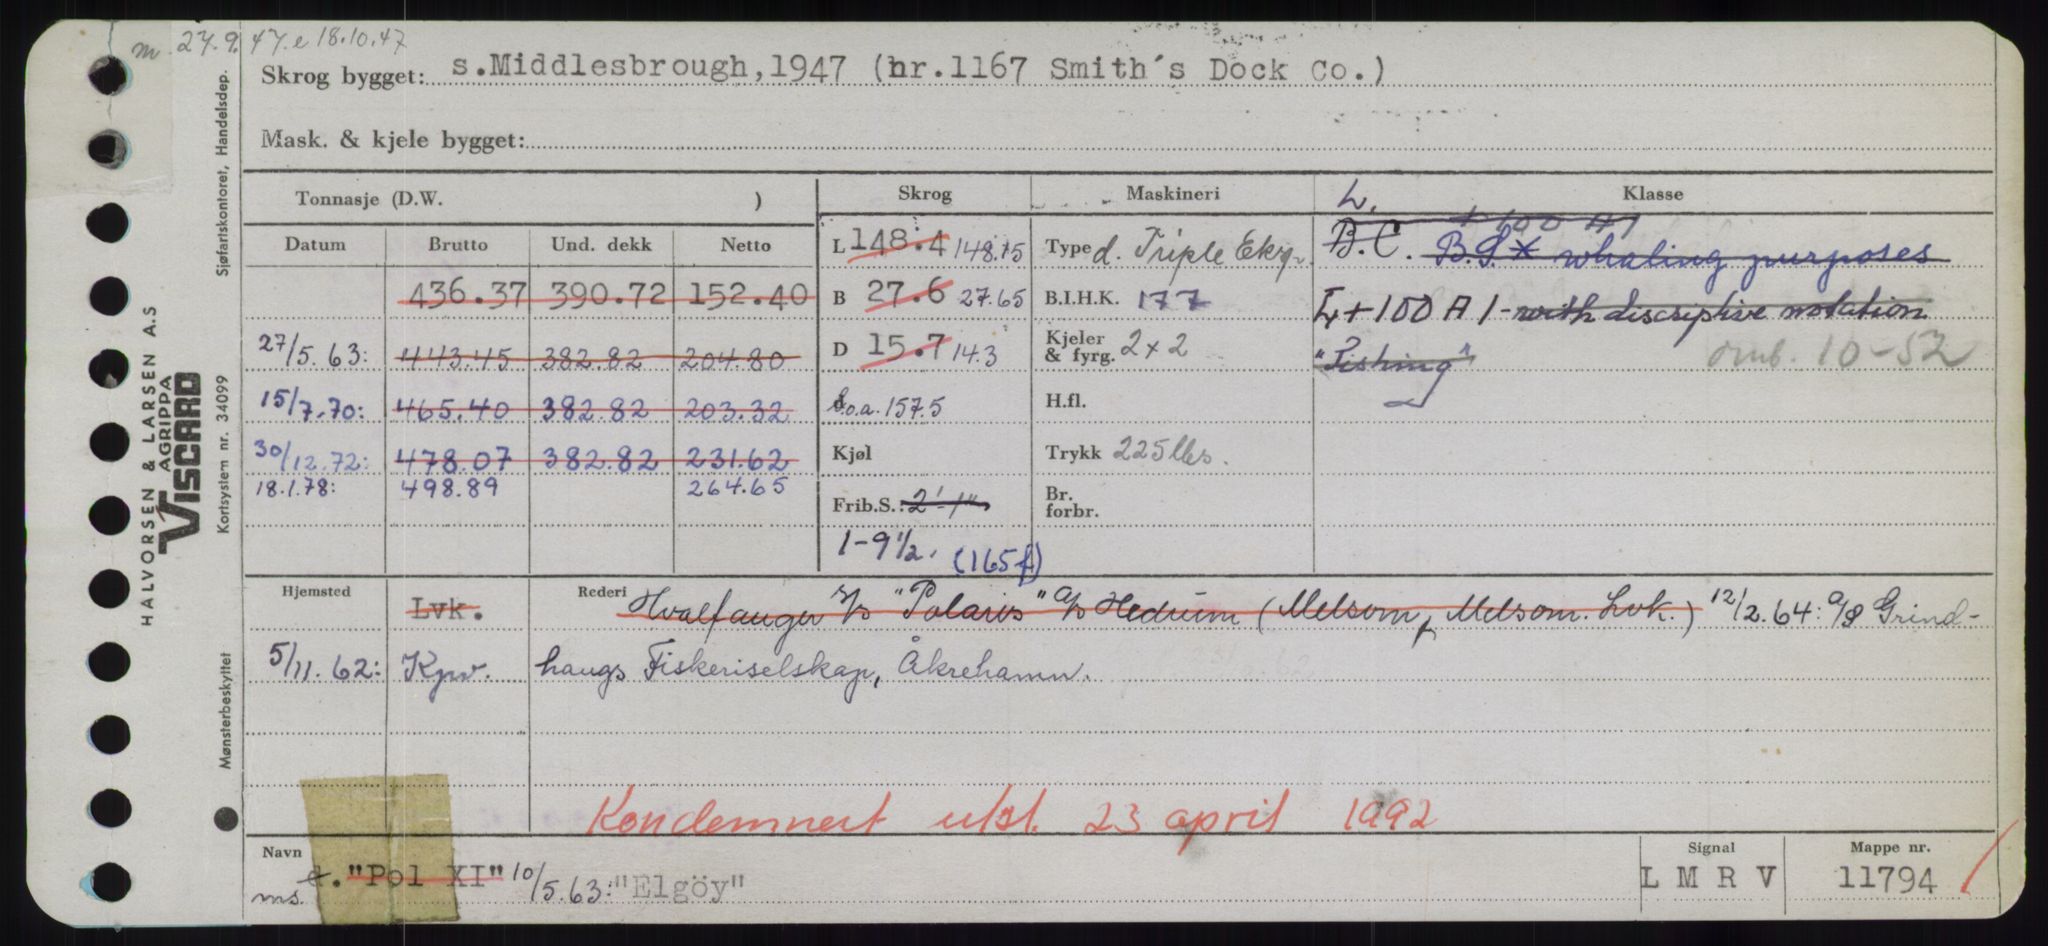 m 27.9.47. e 18.10.47
Skrog bygget: s.Middlesbrough,1947 (nr.1167 Smith´s Dock Co.)
Mask. & kjele bygget:
Tonnasje (D.W. )
Skrog
Maskineri
L. Klasse
Datum Brutto Und. dekk Netto
436.37 390.72 152.40
27/5.63: 443.45 382.82 204.80
15/7.70: 465.40 382.82 203.32
30/12.72: 478.07 382.82 231.62
18.1.78: 498.89 264.65
L 148.4 148.15
B 27.6 27.65
D 15.7 14.3
l.o.a. 157.5
Kjøl
Frib.S.: 2'-1"
1-9 1/2. (165 f)
Type d. Triple Eksp.
B.I.H.K. 177
Kjeler & fyrg. 2 x 2
H.fl.
Trykk 225 lbs.
Br. forbr.
+ 100 A1
B.C. B.S.* whaling purposes
L + 100 A 1 - with discriptive notation
"Fishing" omb. 10-52
Hjemsted Lvk. Rederi Hvalfanger s/s "Polaris" a/s Hedrum (Melsom & Melsom. Lvk.) 12/2.64: a/s Grind-
5/11.62: Kpv. haugs Fiskeriselskap, Åkrehamn.
Kondemnert utsl. 23 april 1992
Navn d. "Pol XI" 10/5.63: "Elgöy"
ms.
Signal L M R V
Mappe nr. 11794
HALVORSEN & LARSEN A.S
AGRIPPA
VISCARD
Sjøfartskontoret, Handelsdep.
Kortsystem nr. 34099
Mønsterbeskyttet